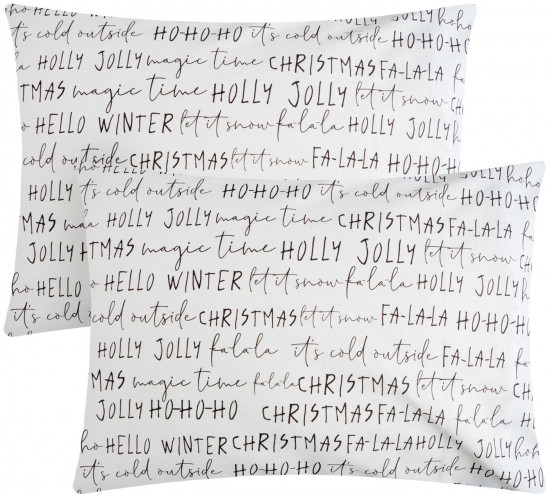 HOLLY JOLLY hoho
it's cold outside HO-HO-HO it's cold outside HO-HO-HO
HOLLY JOLLY magic time CHRISTMAS FA-LA-LA fa
TMAS magic time HOLLY JOLLY let it snow
o HELLO WINTER let it snow falala HOLLY JOLLY
cold outside CHRISTMAS let it snow FA-LA-LA HO-HO
HOLLY JOLLY hoho
HOLLY it's cold outside HO-HO-HO it's cold outside HO-HO-HO
MAS ma HOLLY JOLLY magic time CHRISTMAS FA-LA-LA fa
JOLLY H TMAS magic time HOLLY JOLLY let it snow
ho HELLO HELLO WINTER let it snow falala HOLLY JOLLY h
it's cold cold outside CHRISTMAS let it snow FA-LA-LA HO-HO-
HOLLY JOLLY falala it's cold outside FA-LA-LA
MAS magic time falala CHRISTMAS let it snow
JOLLY HO-HO-HO CHRISTMAS FA-LA-LA falala H
ho HELLO WINTER CHRISTMAS FA-LA-LA HOLLY JOLLY hoh
it's cold outside HO-HO-HO it's cold outside HO-HO-HO